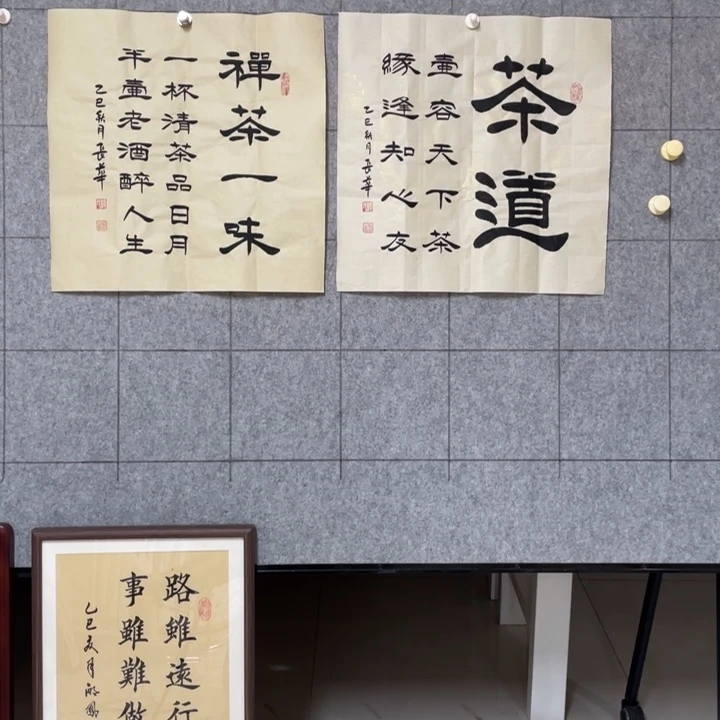 茶道
壷容天下茶
緣逢知心友
乙巳秋月長華
禪茶一味
一杯清茶品日月
半壷老酒醉人生
乙巳秋月長華
路雖遠行
事雖難做
乙巳